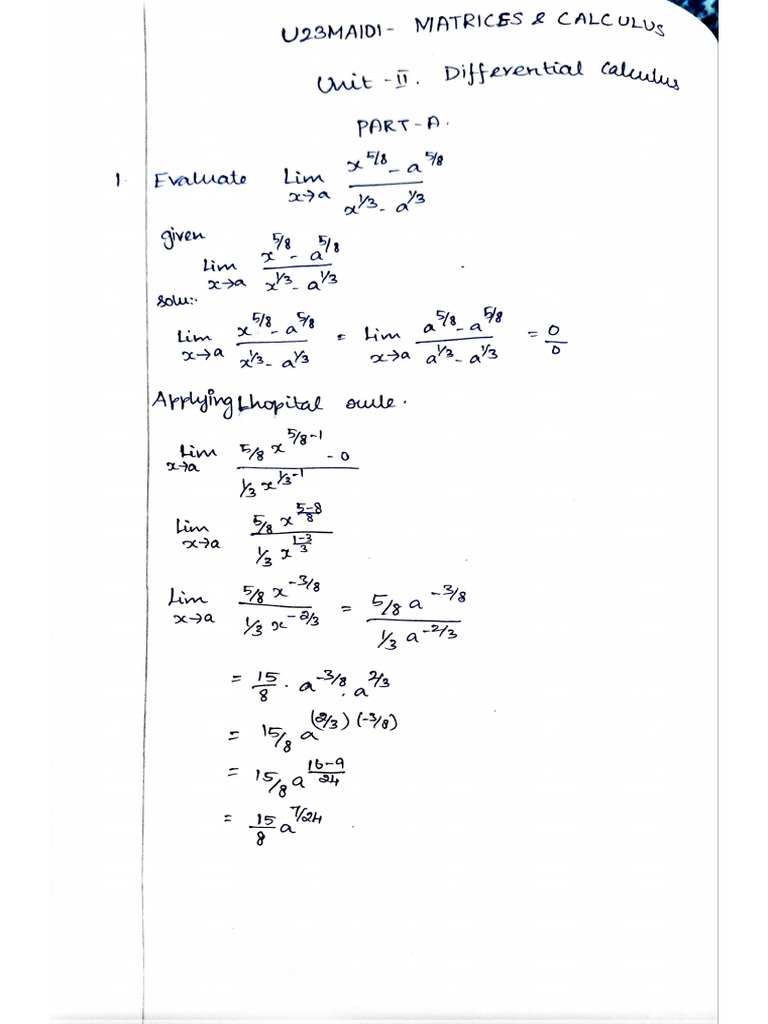 U23MA101- MATRICES & CALCULUS
Unit - II. Differential Calculus
PART-A.
1. Evaluate Lim x→a (x^5/8 - a^5/8)/(x^1/3 - a^1/3)
given
Lim x→a (x^5/8 - a^5/8)/(x^1/3 - a^1/3)
solu:-
Lim x→a (x^5/8 - a^5/8)/(x^1/3 - a^1/3) = Lim x→a (a^5/8 - a^5/8)/(a^1/3 - a^1/3) = 0/0
Applying Lhopital rule.
Lim x→a (5/8 x^(5/8-1) - 0)/(1/3 x^(1/3-1))
Lim x→a (5/8 x^((5-8)/8))/(1/3 x^((1-3)/3))
Lim x→a (5/8 x^-3/8)/(1/3 x^-2/3) = (5/8 a^-3/8)/(1/3 a^-2/3)
= 15/8 · a^-3/8 · a^2/3
= 15/8 a^(2/3)(-3/8)
= 15/8 a^((16-9)/24)
= 15/8 a^7/24